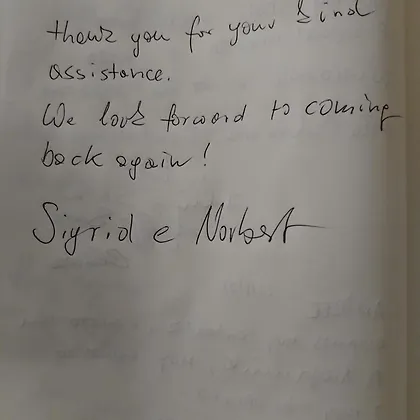 thank you for your kind
assistance.
We look forward to coming
back again!
Sigrid e Norbert